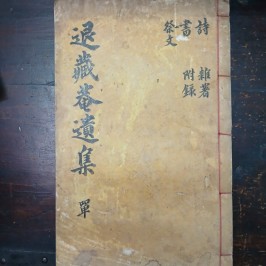 退藏菴遺集 單
詩 雜著
書 附錄
祭文